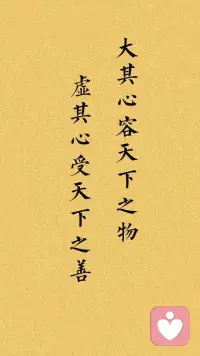 大其心容天下之物
虚其心受天下之善